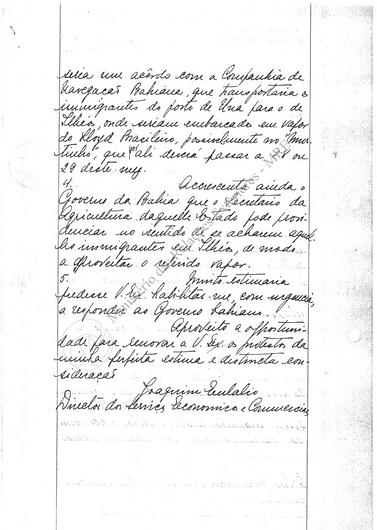 seria um acôrdo com a Companhia de
Navegação Bahiana, que transportaria os
immigrantes do porto de Una para o de
Ilhéos, onde seriam embarcados em vapor
do Lloyd Brasileiro, possivelmente no "Mur-
tinho", que ali deverá passar a 28 ou
29 deste mez.
4. Accrescenta ainda o
Governo da Bahia que o Secretario da
Agricultura daquelle Estado pode provi-
denciar no sentido de se acharem aquel-
les immigrantes em Ilhéos, de modo
a aproveitar o referido vapor.
5. Muito estimaria
pudesse V. Ex. habilitar-me, com urgencia,
a responder ao Governo bahiano.
Aproveito a opportuni-
dade para renovar a V. Ex. os protestos da
minha perfeita estima e distincta con-
sideração
Joaquim Eulalio
Director dos Serviços Economicos e Commerciaes